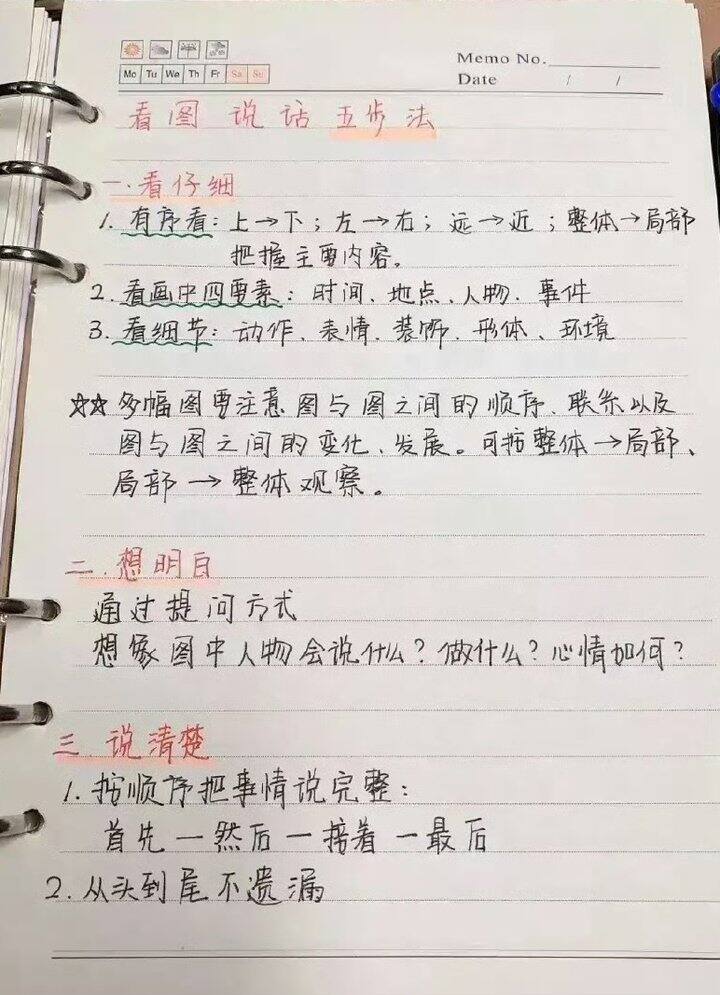 Memo No.
Mo Tu We Th Fr Sa Su
Date / /
看图说话五步法
一.看仔细
1. 有序看：上→下；左→右；远→近；整体→局部
把握主要内容。
2. 看画中四要素：时间、地点、人物、事件
3. 看细节：动作、表情、装饰、形体、环境
☆☆ 多幅图要注意图与图之间的顺序、联系以及
图与图之间的变化、发展。可按整体→局部、
局部→整体观察。
二.想明白
通过提问方式
想象图中人物会说什么？做什么？心情如何？
三 说清楚
1. 按顺序把事情说完整：
首先—然后—接着—最后
2. 从头到尾不遗漏